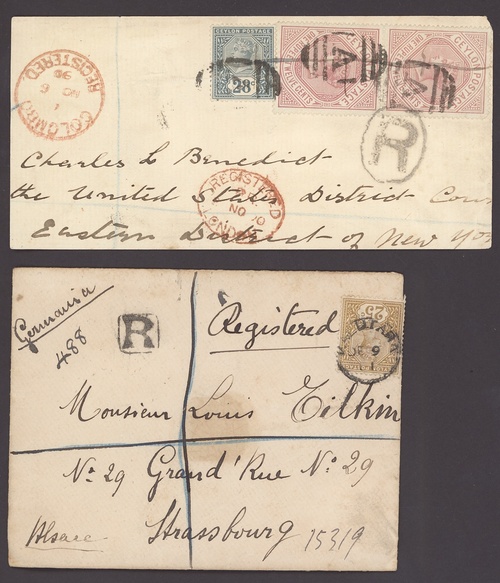 CEYLON POSTAGE
28
CEYLON POSTAGE
CEYLON POSTAGE
A
A
REGISTERED
COLOMBO
R
Charles L Benedict
the United States District Cour
REGISTERED
NO 10
LONDON
Eastern District of New York
Germania
488
R
Registered
Monsieur Louis Eilkin
No 29 Grand'Rue No 29
Alsace
Strassbourg
15319